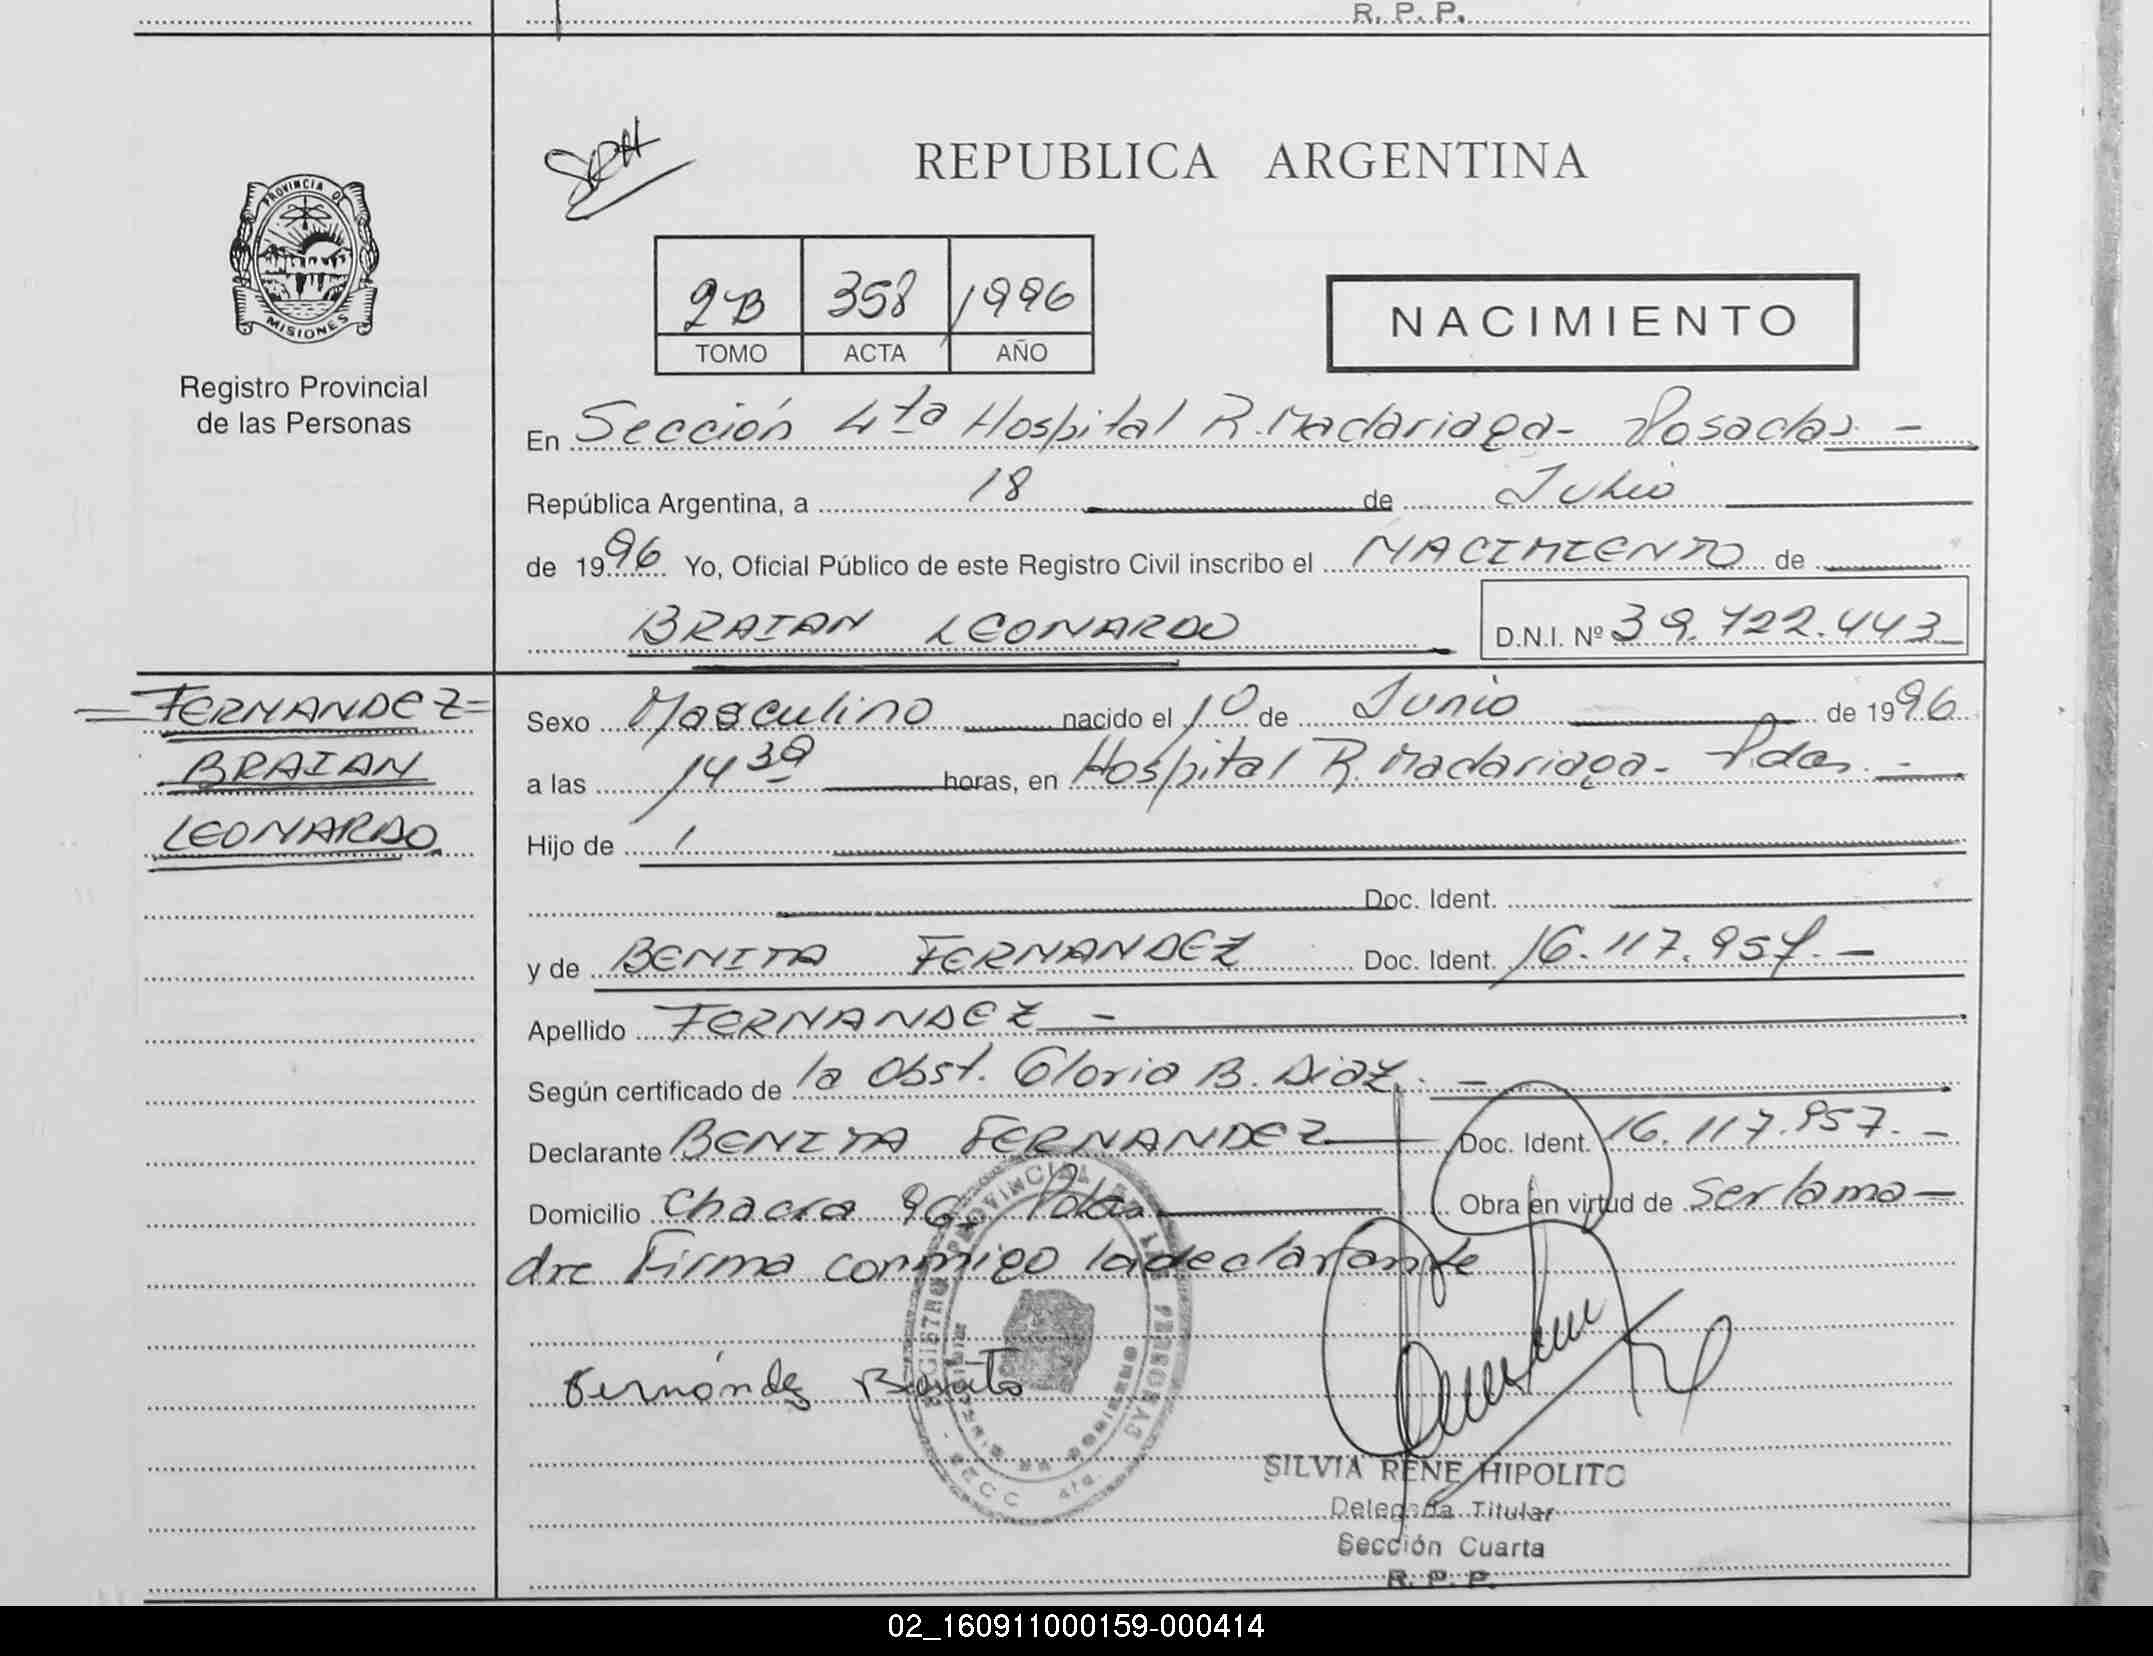 R. P. P.
REPUBLICA ARGENTINA
PROVINCIA DE
MISIONES
Registro Provincial
de las Personas
2B 358 1996
TOMO ACTA AÑO
NACIMIENTO
En Sección 4ta Hospital R. Madariaga - Posadas. -
República Argentina, a 18 de Julio
de 1996 Yo, Oficial Público de este Registro Civil inscribo el NACIMIENTO de
BRAIAN LEONARDO D.N.I. Nº 39.722.443
FERNANDEZ=
BRAIAN
LEONARDO
Sexo Masculino nacido el 10 de Junio de 1996
a las 14 30 horas, en Hospital R. Madariaga - Pdas. -
Hijo de
Doc. Ident.
y de BENITA FERNANDEZ Doc. Ident. 16.117.957. -
Apellido FERNANDEZ -
Según certificado de la Obst. Gloria B. Diaz. -
Declarante BENITA FERNANDEZ Doc. Ident. 16.117.957. -
Domicilio Chacra 96 Pdas Obra en virtud de ser la ma-
dre Firma conmigo la declarante
Fernández Benita
REGISTRO PROVINCIAL DE LAS PERSONAS
SILVIA RENE HIPOLITO
Delegada Titular
Sección Cuarta
R. P. P.
02_160911000159-000414